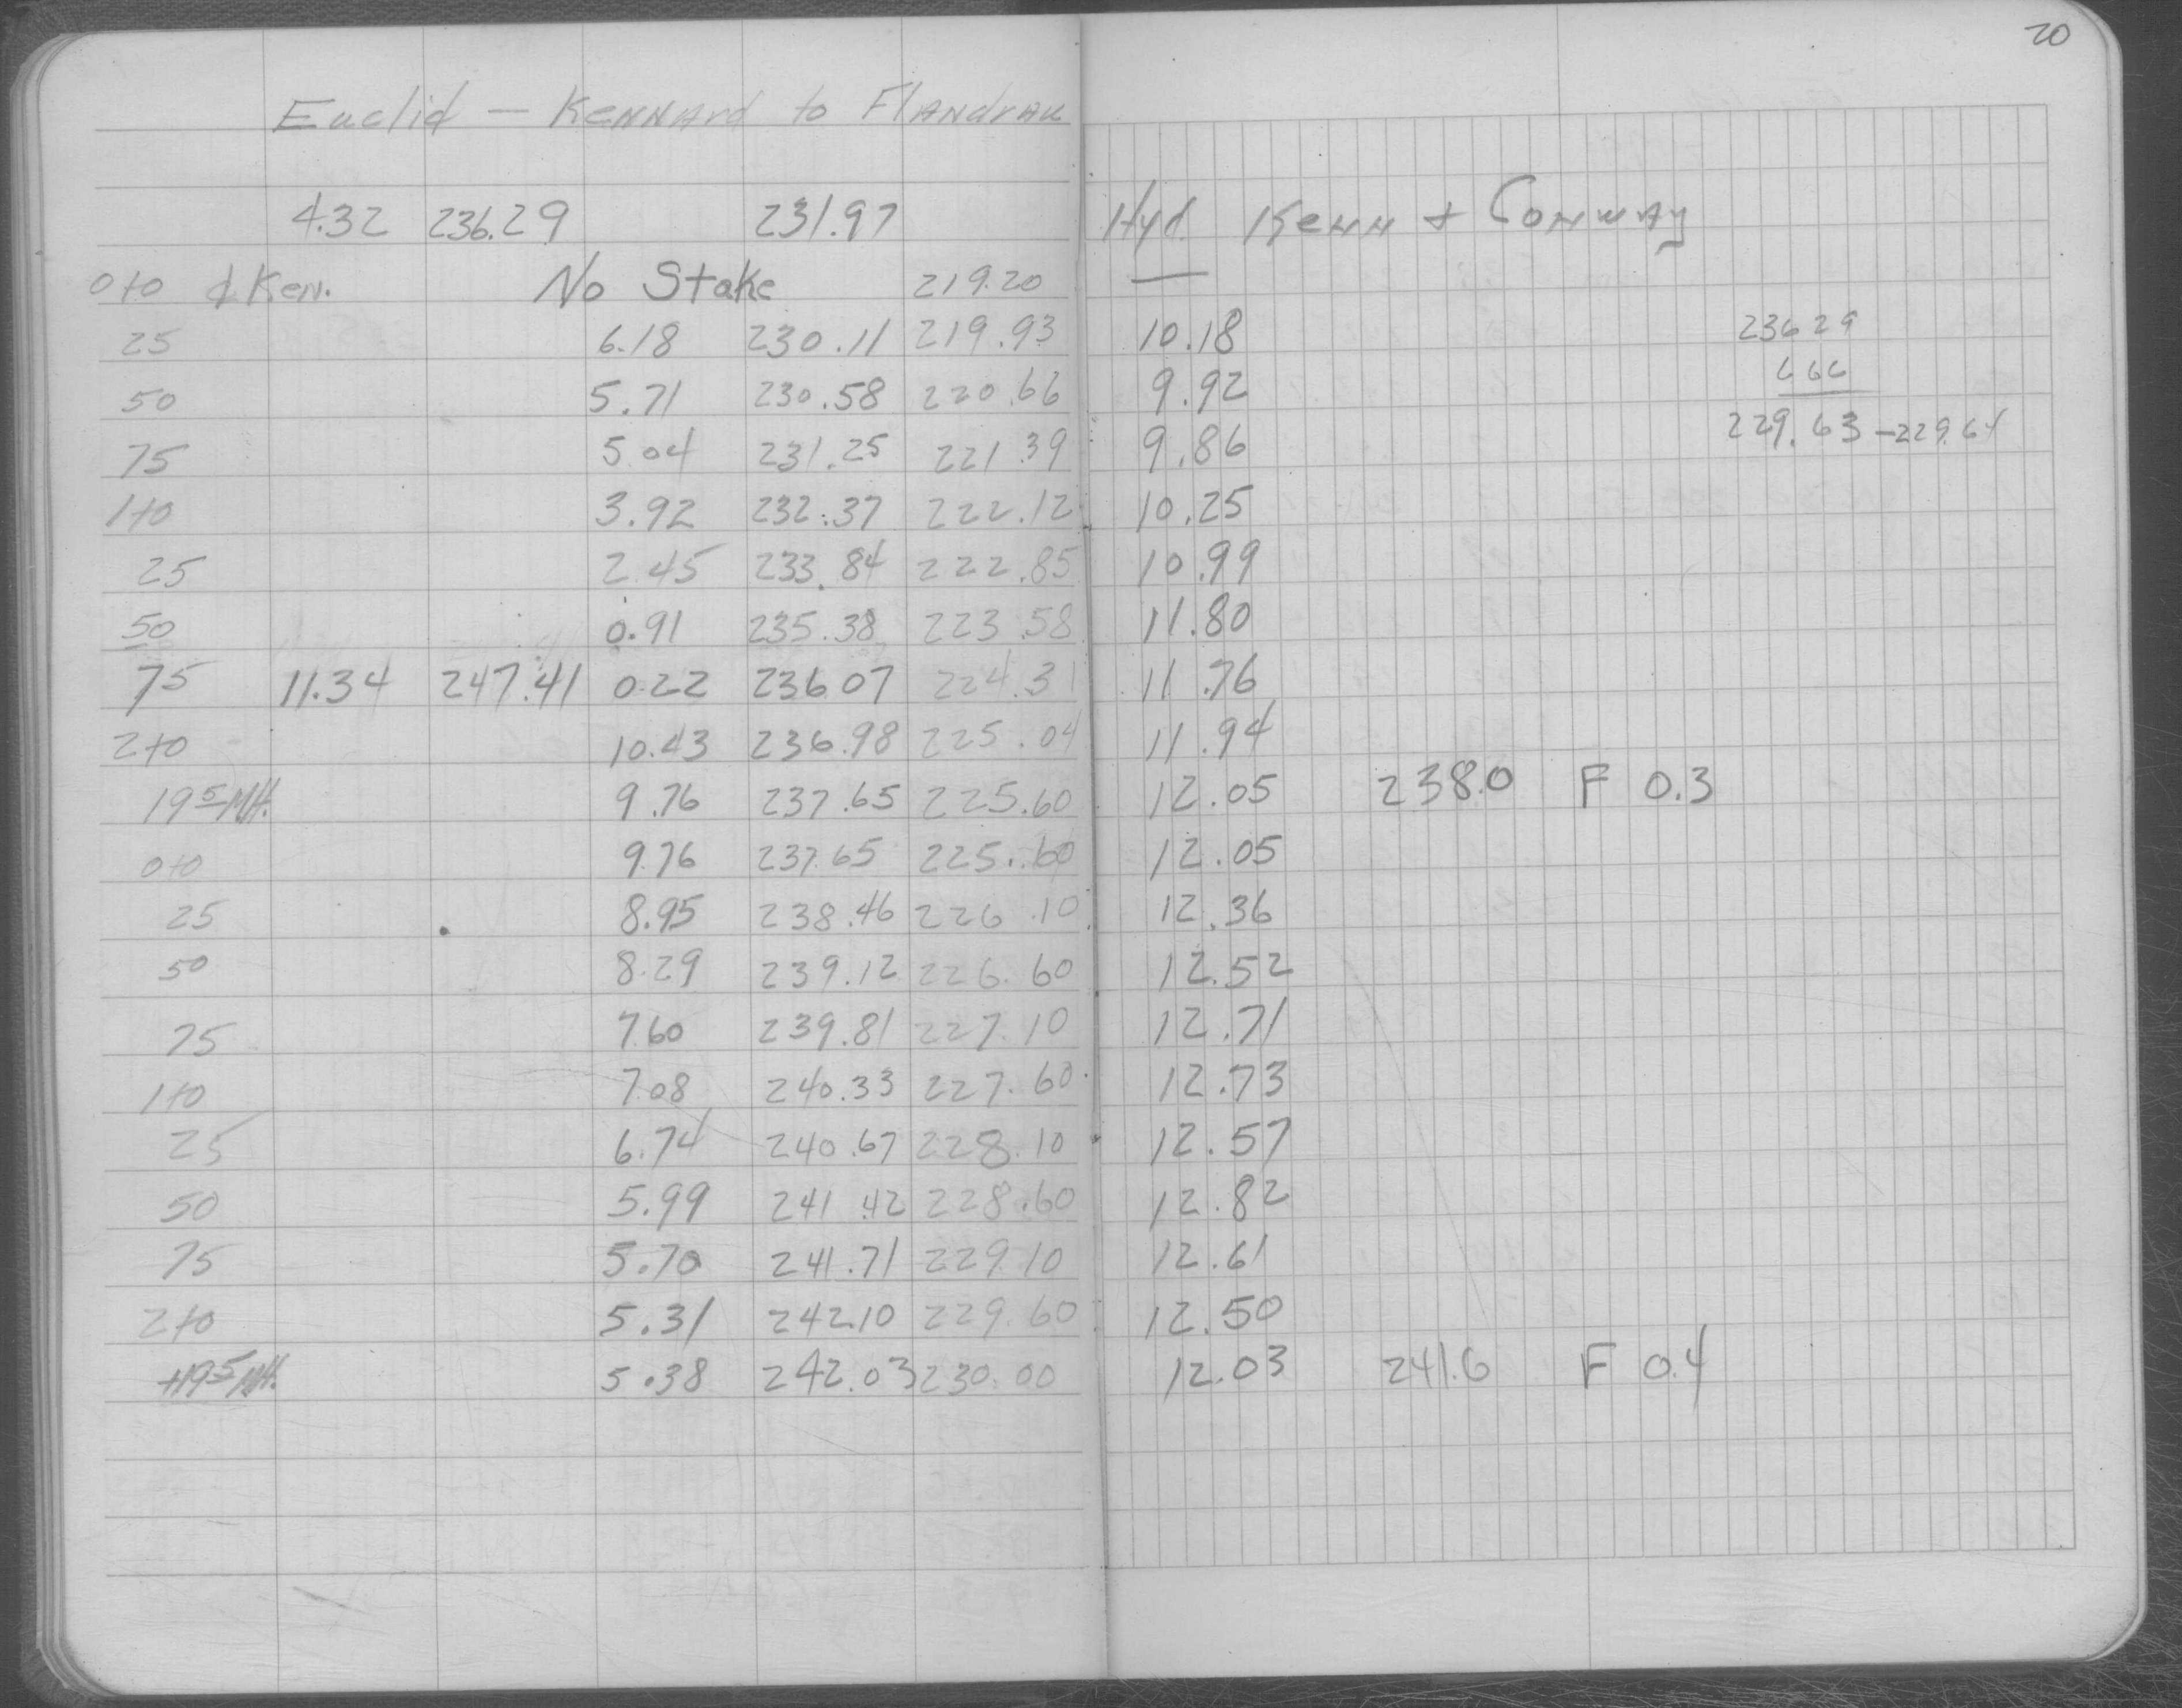 20
Euclid — Kennard to Flandrau
4.32 236.29 231.97 Hyd. Kenn + Conway
0+0 ¢ Ken. No Stake 219.20
25 6.18 230.11 219.93 10.18 236 29
50 5.71 230.58 220.66 9.92 6 66
75 5.04 231.25 221.39 9.86 229.63 - 229.64
1+0 3.92 232.37 222.12 10.25
25 2.45 233.84 222.85 10.99
50 0.91 235.38 223.58 11.80
75 11.34 247.41 0.22 236.07 224.31 11.76
2+0 10.43 236.98 225.04 11.94
19 5 MH. 9.76 237.65 225.60 12.05 238.0 F 0.3
0+0 9.76 237.65 225.60 12.05
25 8.95 238.46 226.10 12.36
50 8.29 239.12 226.60 12.52
75 7.60 239.81 227.10 12.71
1+0 7.08 240.33 227.60 12.73
25 6.74 240.67 228.10 12.57
50 5.99 241.42 228.60 12.82
75 5.70 241.71 229.10 12.61
2+0 5.31 242.10 229.60 12.50
+19 5 MH. 5.38 242.03 230.00 12.03 241.6 F 0.4